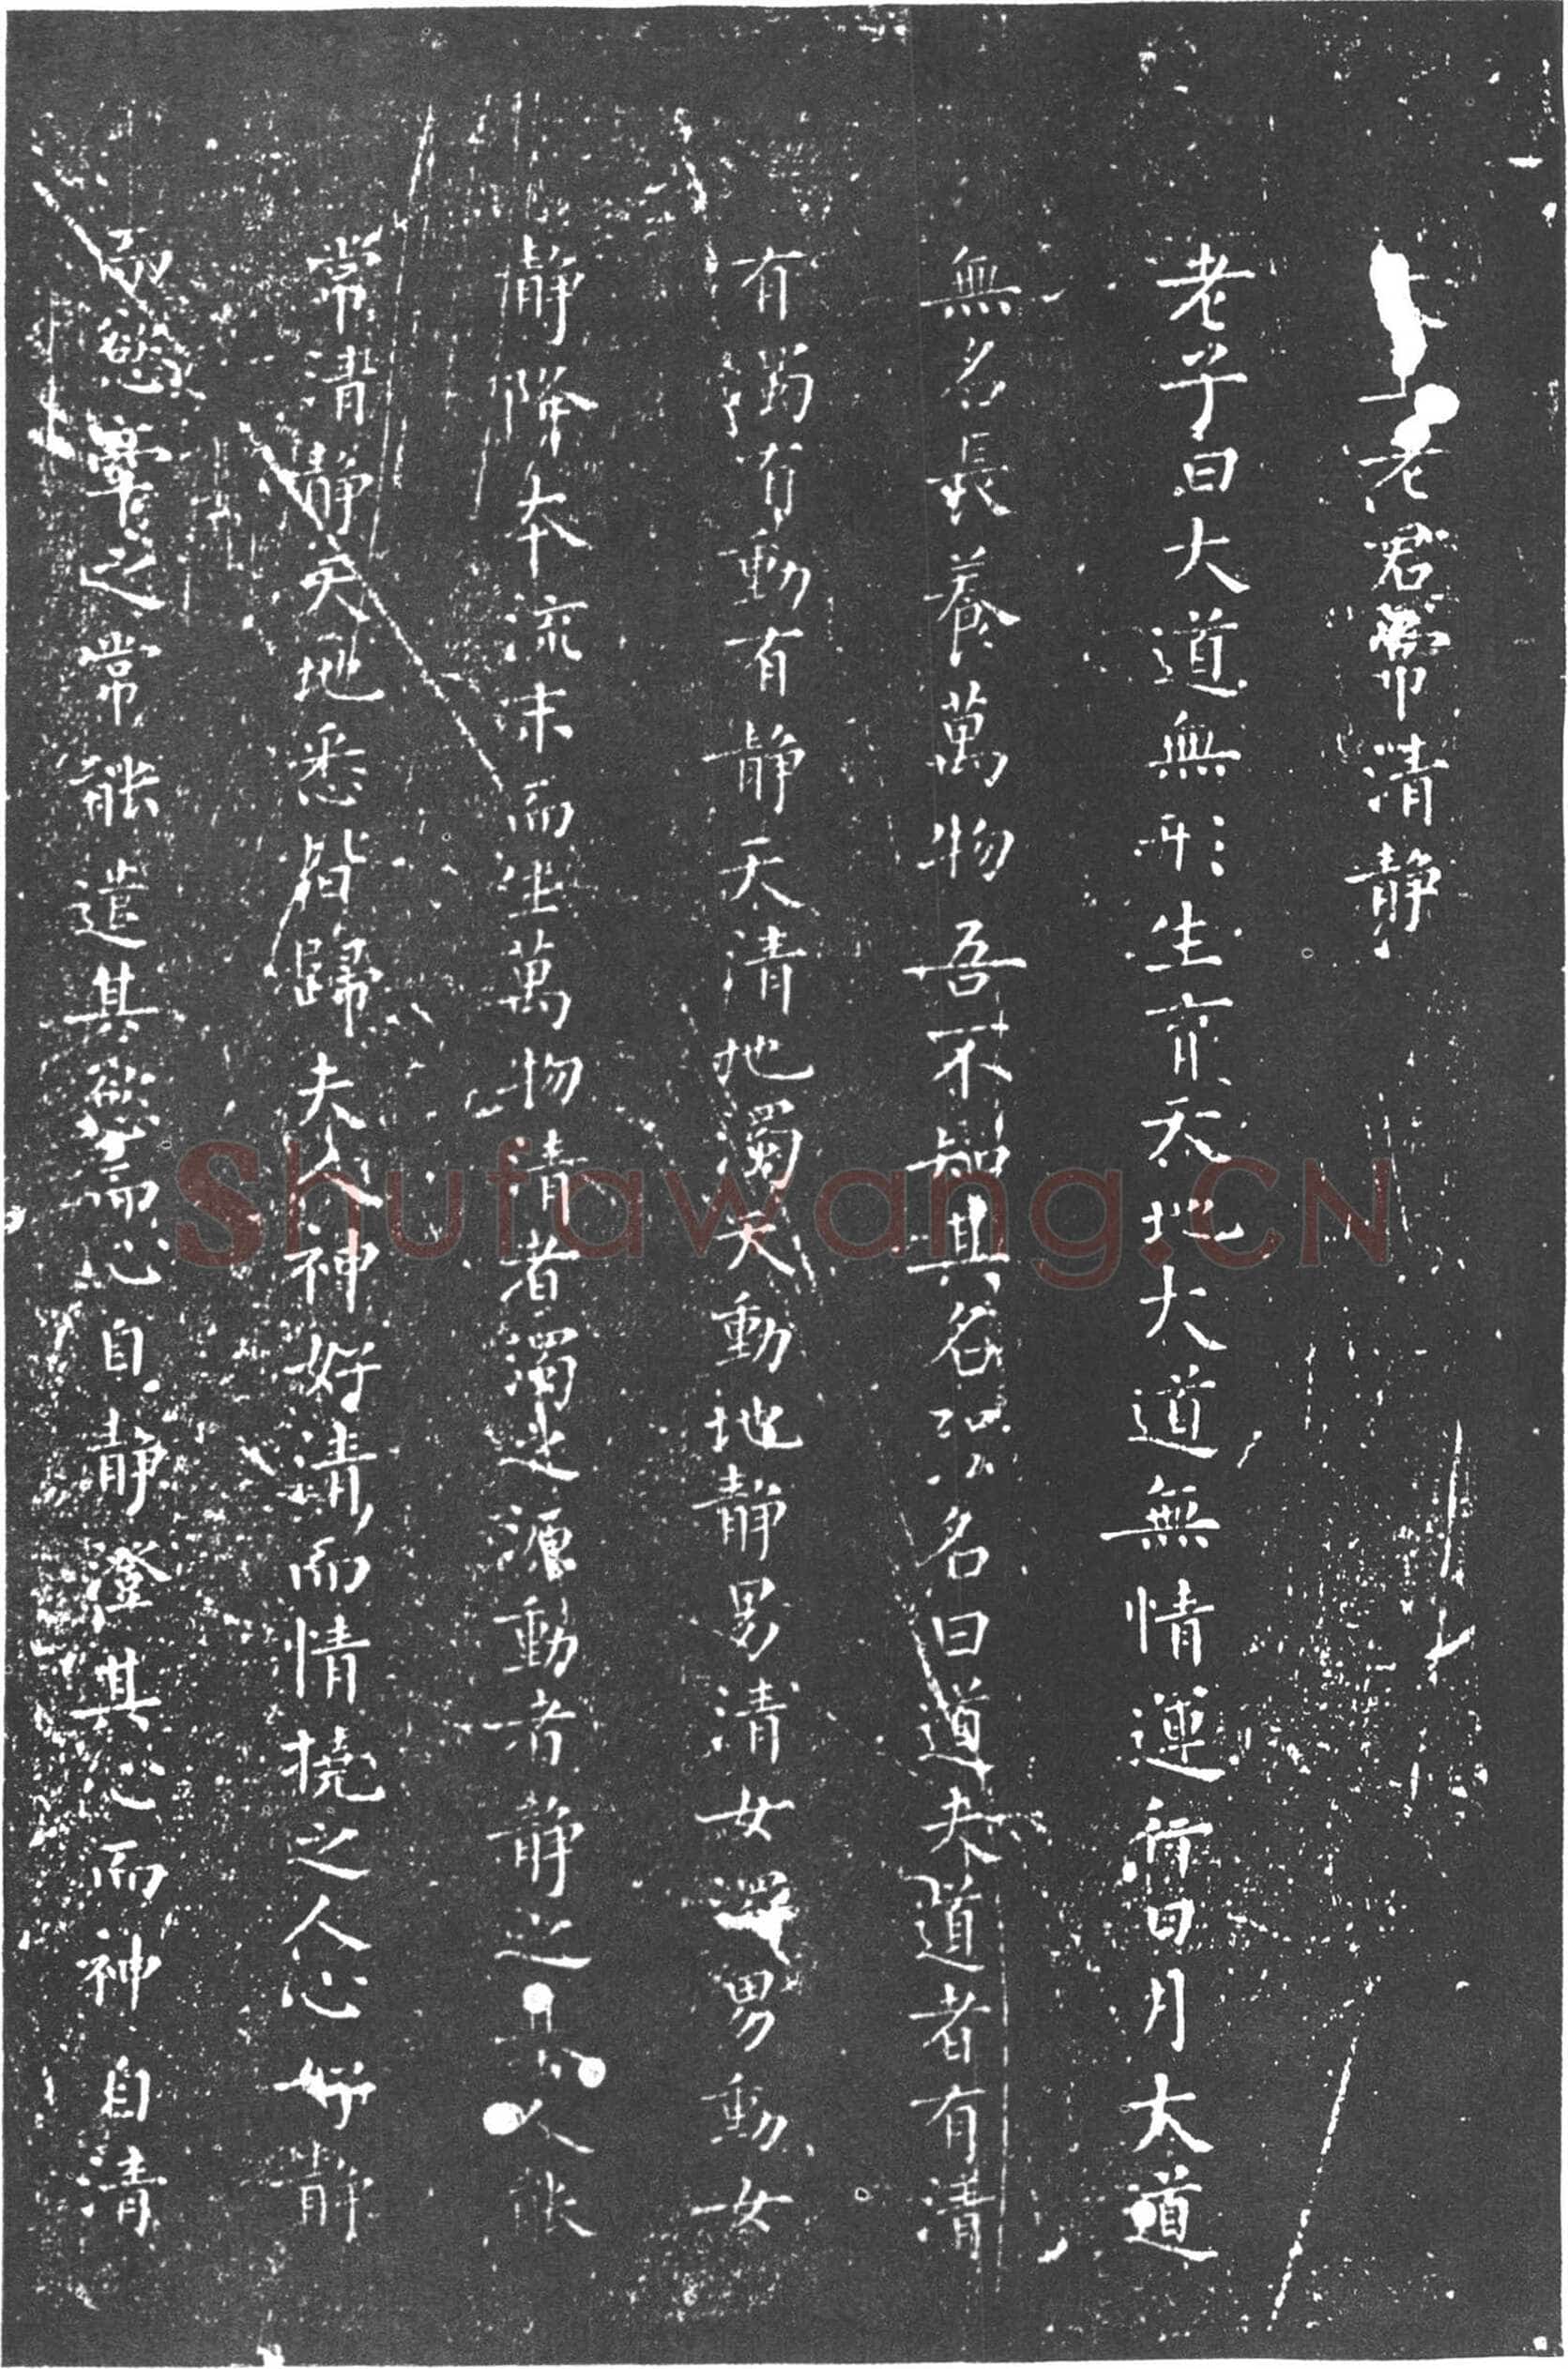 太上老君常清静
老子曰大道無形生育天地大道無情運行日月大道
無名長養萬物吾不知其名強名曰道夫道者有清
有濁有動有静天清地濁天動地静男清女濁男動女
静降本流末而生萬物清者濁之源動者静之基人能
常清静天地悉皆歸夫人神好清而情撓之人心好静
而慾牽之常能遣其慾而心自静澄其心而神自清
Shufawang.CN